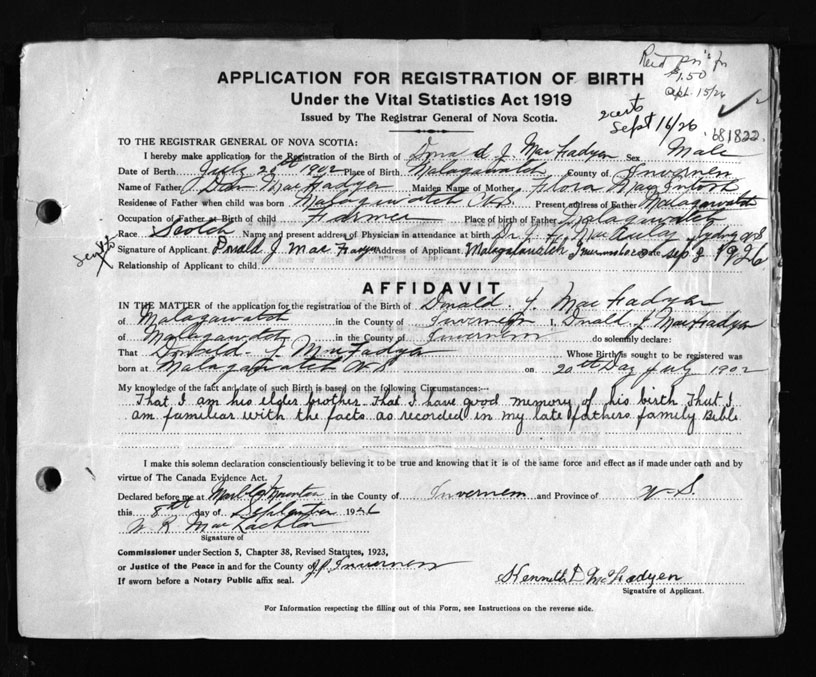 Rec'd
$1.50
Sept. 15/26
APPLICATION FOR REGISTRATION OF BIRTH
Under the Vital Statistics Act 1919
Issued by The Registrar General of Nova Scotia.
2 certs
Sept 16/26
681822
TO THE REGISTRAR GENERAL OF NOVA SCOTIA:
I hereby make application for the Registration of the Birth of Donald J. MacFadyen Sex Male
Date of Birth July 20th 1902 Place of Birth Malagawatch County of Inverness
Name of Father Dan MacFadyen Maiden Name of Mother Flora MacIntosh
Residence of Father when child was born Malagawatch Present address of Father Malagawatch
Occupation of Father at Birth of child Farmer Place of birth of Father Malagawatch
Race Scotch Name and present address of Physician in attendance at birth Dr MacAulay Sydney N S
Signature of Applicant Donald J. MacFadyen Address of Applicant Malagawatch Inverness Co Date Sep 8 1926
Relationship of Applicant to child
AFFIDAVIT
IN THE MATTER of the application for the registration of the Birth of Donald J. MacFadyen
of Malagawatch in the County of Inverness I, Donald J MacFadyen
of Malagawatch in the County of Inverness do solemnly declare:
That Donald J MacFadyen Whose Birth is sought to be registered was
born at Malagawatch on 20th Day July 1902
My knowledge of the fact and date of such Birth is based on the following Circumstances:--
That I am his elder brother That I have good memory of his birth That I
am familiar with the facts as recorded in my late fathers family Bible
I make this solemn declaration conscientiously believing it to be true and knowing that it is of the same force and effect as if made under oath and by
virtue of The Canada Evidence Act.
Declared before me at Marble Mountain in the County of Inverness and Province of N S.
this 8th day of September 1926
Signature of
Commissioner under Section 5, Chapter 38, Revised Statutes, 1923,
or Justice of the Peace in and for the County of J.P. Inverness
If sworn before a Notary Public affix seal.
Kenneth D McFadyen
Signature of Applicant.
For Information respecting the filling out of this Form, see Instructions on the reverse side.